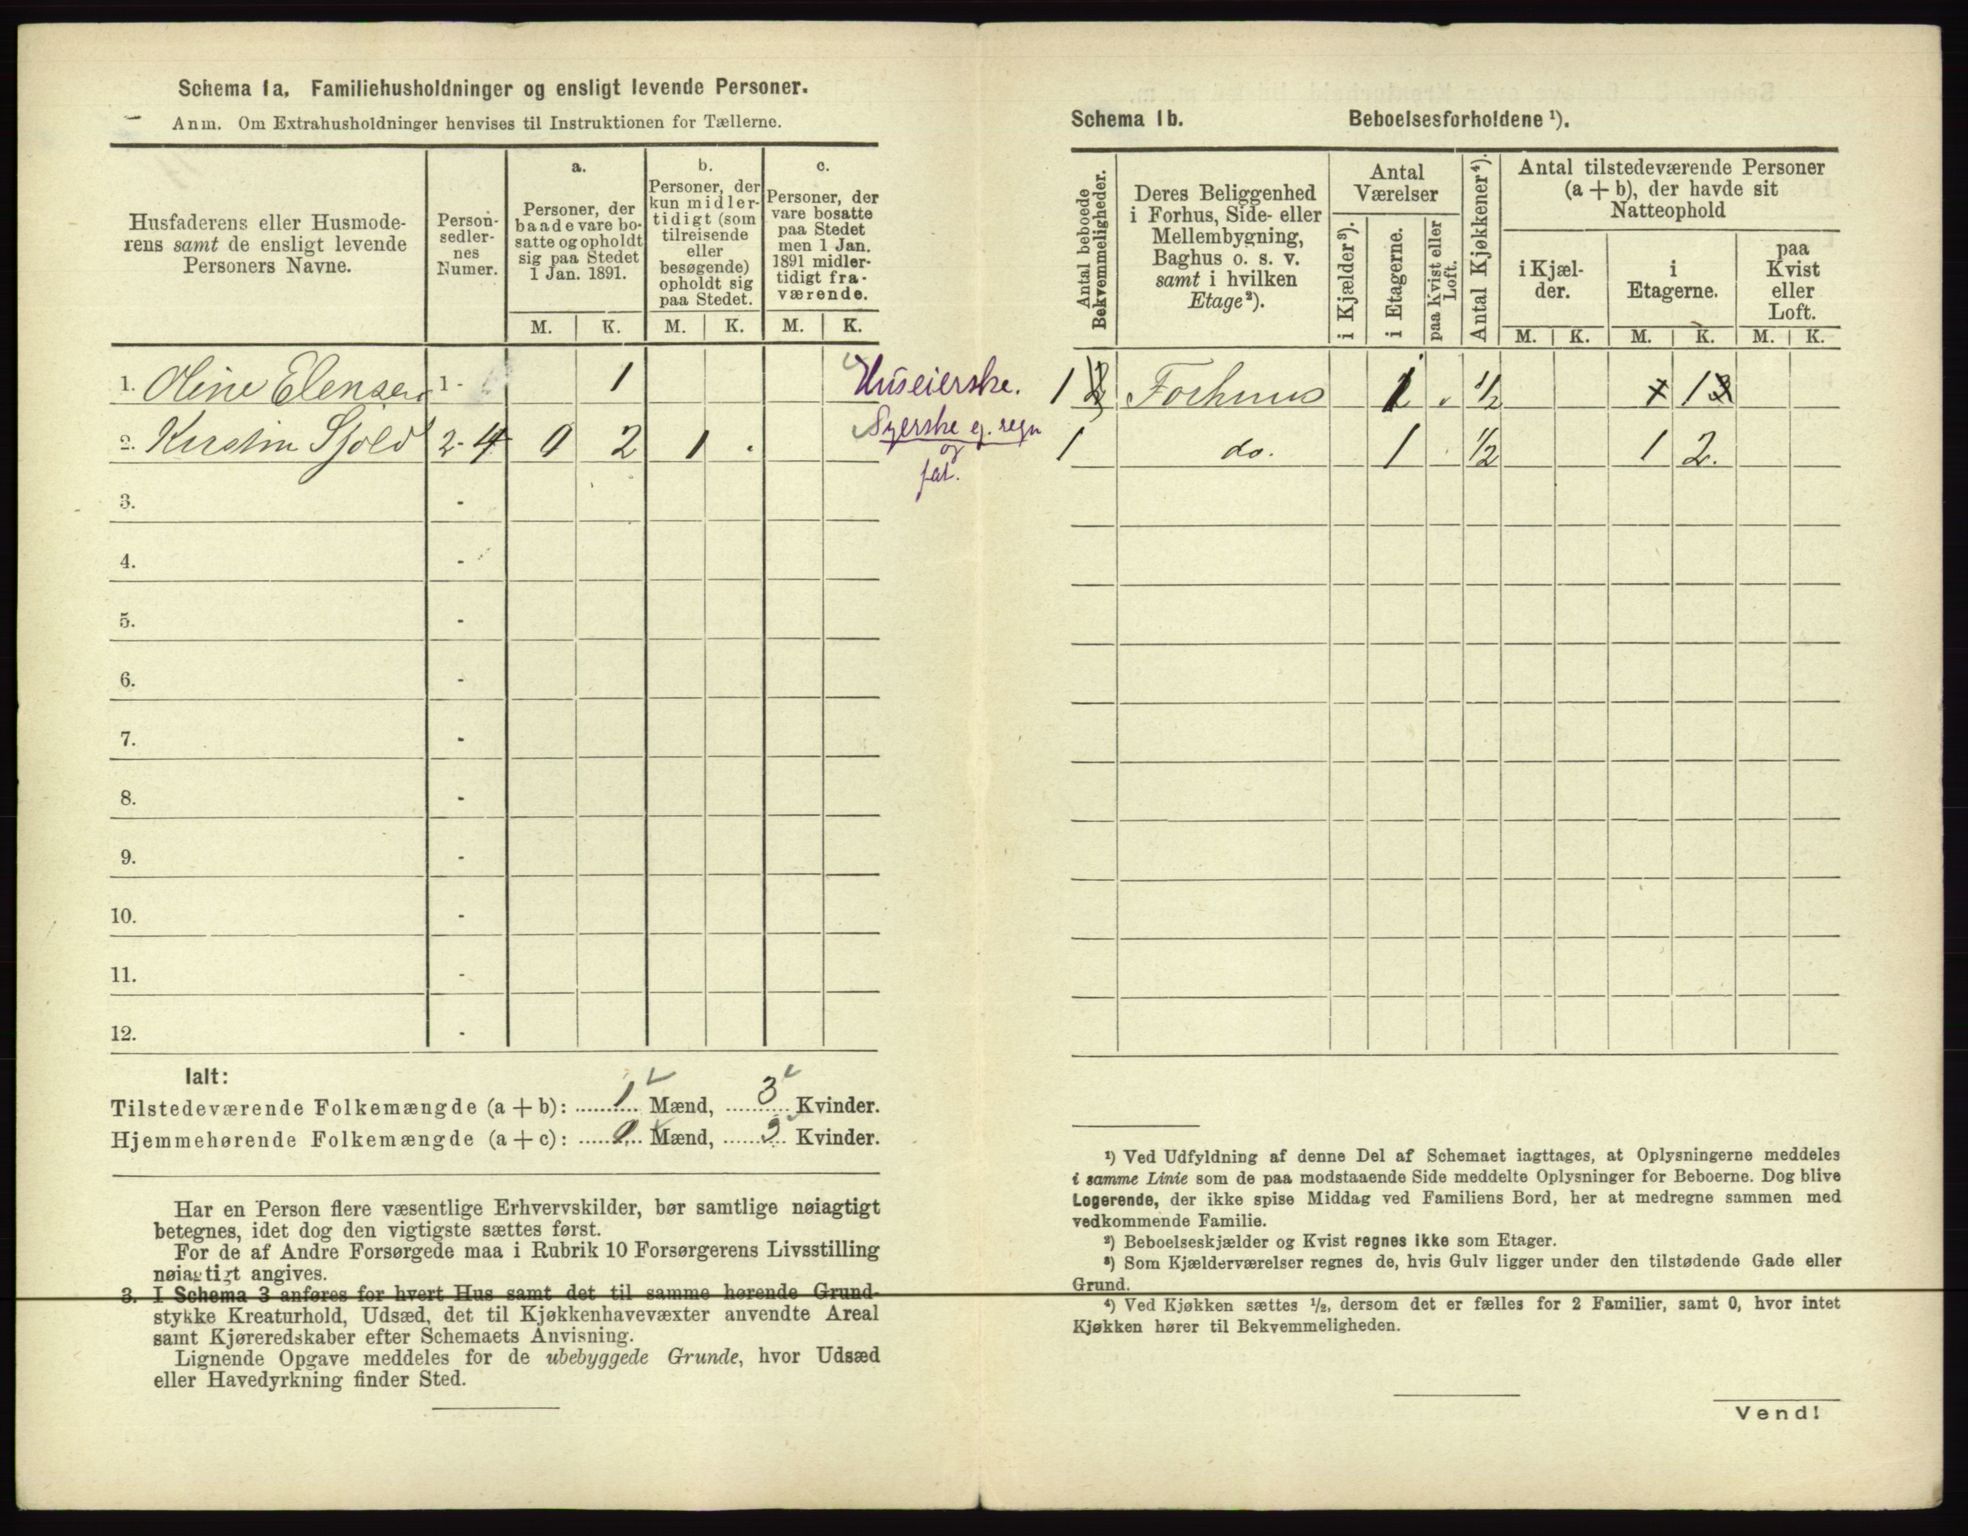 Schema 1a. Familiehusholdninger og ensligt levende Personer.
Anm. Om Extrahusholdninger henvises til Instruktionen for Tællerne.
Husfaderens eller Husmode-
rens samt de ensligt levende
Personers Navne.
Person-
sedler-
nes
Numer.
a.
Personer, der
baade vare bo-
satte og opholdt
sig paa Stedet
1 Jan. 1891.
b.
Personer, der
kun midler-
tidigt (som
tilreisende
eller
besøgende)
opholdt sig
paa Stedet.
c.
Personer, der
vare bosatte
paa Stedet
men 1 Jan.
1891 midler-
tidigt fra-
værende.
M. K. M. K. M. K.
1. Oline Elensen 1 - 1 Huseierske.
2. Kirstin Sjold 2-4 0 2 1 . Syerske e. regn
og
fat.
3. -
4. -
5. -
6. -
7. -
8. -
9. -
10. -
11. -
12. -
Ialt:
Tilstedeværende Folkemængde (a + b): 1 Mænd, 3 Kvinder.
Hjemmehørende Folkemængde (a + c): 0 Mænd, 3 Kvinder.
Har en Person flere væsentlige Erhvervskilder, bør samtlige nøiagtigt
betegnes, idet dog den vigtigste sættes først.
For de af Andre Forsørgede maa i Rubrik 10 Forsørgerens Livsstilling
nøiagtigt angives.
3. I Schema 3 anføres for hvert Hus samt det til samme hørende Grund-
stykke Kreaturhold, Udsæd, det til Kjøkkenhavevæxter anvendte Areal
samt Kjøreredskaber efter Schemaets Anvisning.
Lignende Opgave meddeles for de ubebyggede Grunde, hvor Udsæd
eller Havedyrkning finder Sted.
Schema 1b. Beboelsesforholdene ¹).
Antal beboede
Bekvemmeligheder.
Deres Beliggenhed
i Forhus, Side- eller
Mellembygning,
Baghus o. s. v.
samt i hvilken
Etage²).
Antal
Værelser
i Kjælder³).
i Etagerne.
paa Kvist eller
Loft.
Antal Kjøkkener⁴).
Antal tilstedeværende Personer
(a + b), der havde sit
Natteophold
i Kjæl-
der.
i
Etagerne.
paa
Kvist
eller
Loft.
M. K. M. K. M. K.
1 2 Forhuus 1 . ½ 1 1 3
1 do. 1 . ½ 1 2.
¹) Ved Udfyldning af denne Del af Schemaet iagttages, at Oplysningerne meddeles
i samme Linie som de paa modstaaende Side meddelte Oplysninger for Beboerne. Dog blive
Logerende, der ikke spise Middag ved Familiens Bord, her at medregne sammen med
vedkommende Familie.
²) Beboelseskjælder og Kvist regnes ikke som Etager.
³) Som Kjælderværelser regnes de, hvis Gulv ligger under den tilstødende Gade eller
Grund.
⁴) Ved Kjøkken sættes ½, dersom det er fælles for 2 Familier, samt 0, hvor intet
Kjøkken hører til Bekvemmeligheden.
Vend!